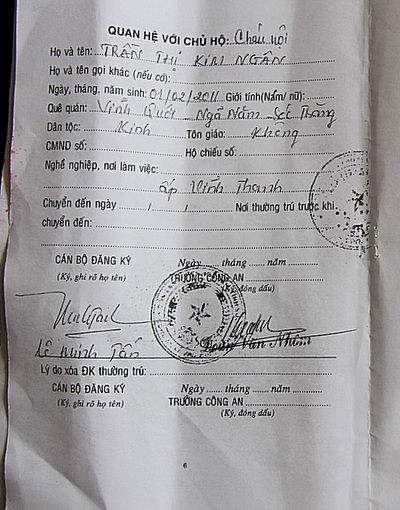 QUAN HỆ VỚI CHỦ HỘ: Cháu nội
Họ và tên: TRẦN THỊ KIM NGÂN
Họ và tên gọi khác (nếu có):
Ngày, tháng, năm sinh: 01/02/2011 Giới tính(Nam/ nữ):
Quê quán: Vĩnh Quới - Ngã Năm - Sóc Trăng
Dân tộc: Kinh Tôn giáo: Không
CMND số: Hộ chiếu số:
Nghề nghiệp, nơi làm việc:
ấp Vĩnh Thanh
Chuyển đến ngày / / / Nơi thường trú trước khi
chuyển đến:
CÁN BỘ ĐĂNG KÝ Ngày ..... tháng ..... năm
(Ký, ghi rõ họ tên) TRƯỞNG CÔNG AN
(Ký, đóng dấu)
Lê Minh Tấn Văn Nhóm
Lý do xóa ĐK thường trú:
CÁN BỘ ĐĂNG KÝ Ngày ..... tháng ..... năm
(Ký, ghi rõ họ tên) TRƯỞNG CÔNG AN
(Ký, đóng dấu)
6